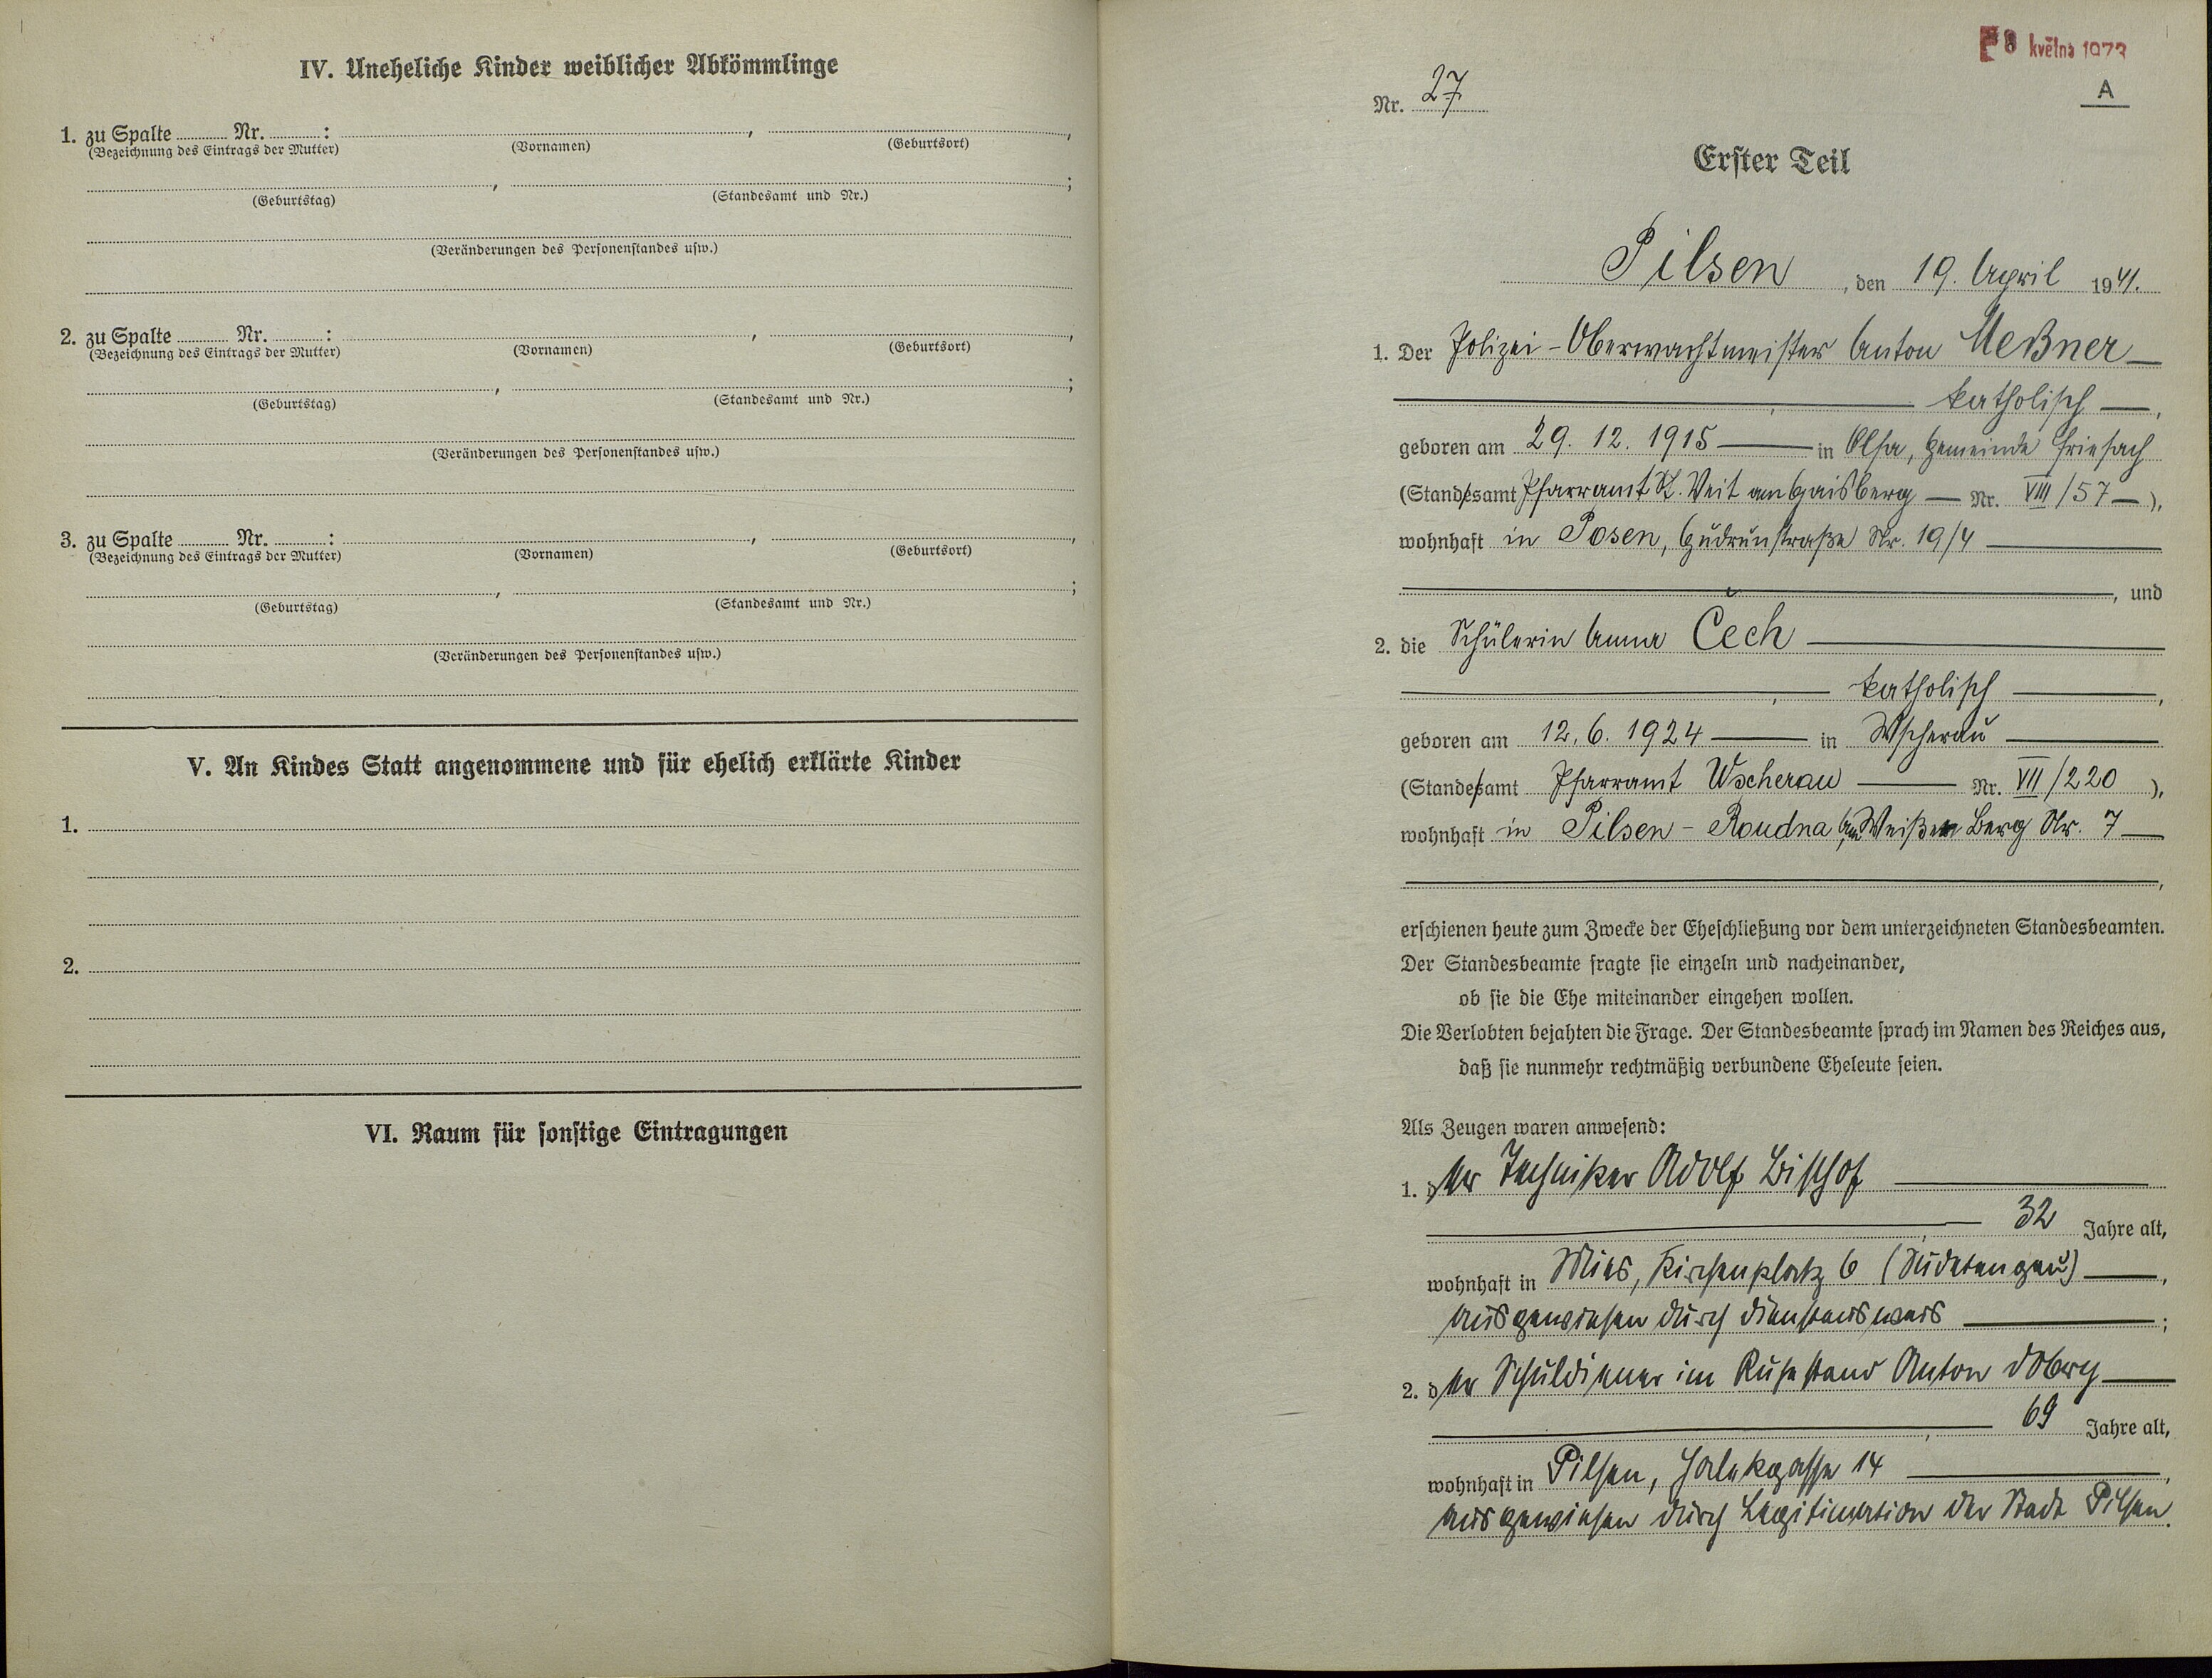 IV. Uneheliche Kinder weiblicher Abkömmlinge
1. zu Spalte Nr. : , ,
(Bezeichnung des Eintrags der Mutter) (Vornamen) (Geburtsort)
, ;
(Geburtstag) (Standesamt und Nr.)
(Veränderungen des Personenstandes usw.)
2. zu Spalte Nr. : , ,
(Bezeichnung des Eintrags der Mutter) (Vornamen) (Geburtsort)
, ;
(Geburtstag) (Standesamt und Nr.)
(Veränderungen des Personenstandes usw.)
3. zu Spalte Nr. : , ,
(Bezeichnung des Eintrags der Mutter) (Vornamen) (Geburtsort)
, ;
(Geburtstag) (Standesamt und Nr.)
(Veränderungen des Personenstandes usw.)
V. An Kindes Statt angenommene und für ehelich erklärte Kinder
1.
2.
VI. Raum für sonstige Eintragungen
8 května 1973
A
Nr. 27
Erster Teil
Pilsen, den 19. April 1941.
1. Der Polizei-Oberwachtmeister Anton Meßner
, katholisch,
geboren am 29. 12. 1915 in Olsa, Gemeinde Friesach
(Standesamt Pfarramt St. Veit am Gaisberg Nr. VIII/57),
wohnhaft in Posen, Gudrunstraße Nr. 19/4
, und
2. die Schülerin Anna Čech
, katholisch,
geboren am 12. 6. 1924 in Wscherau
(Standesamt Pfarramt Wscherau Nr. VII/220),
wohnhaft in Pilsen-Roudna Am Weißen Berg Nr. 7
,
erschienen heute zum Zwecke der Eheschließung vor dem unterzeichneten Standesbeamten.
Der Standesbeamte fragte sie einzeln und nacheinander,
ob sie die Ehe miteinander eingehen wollen.
Die Verlobten bejahten die Frage. Der Standesbeamte sprach im Namen des Reiches aus,
daß sie nunmehr rechtmäßig verbundene Eheleute seien.
Als Zeugen waren anwesend:
1. der Techniker Adolf Bischof
, 32 Jahre alt,
wohnhaft in Mies, Kirchenplatz 6 (Sudetengau),
ausgewiesen durch Dienstausweis;
2. der Schuldiener im Ruhestand Anton
, 69 Jahre alt,
wohnhaft in Pilsen, Halekgasse 14,
ausgewiesen durch Legitimation der Stadt Pilsen.